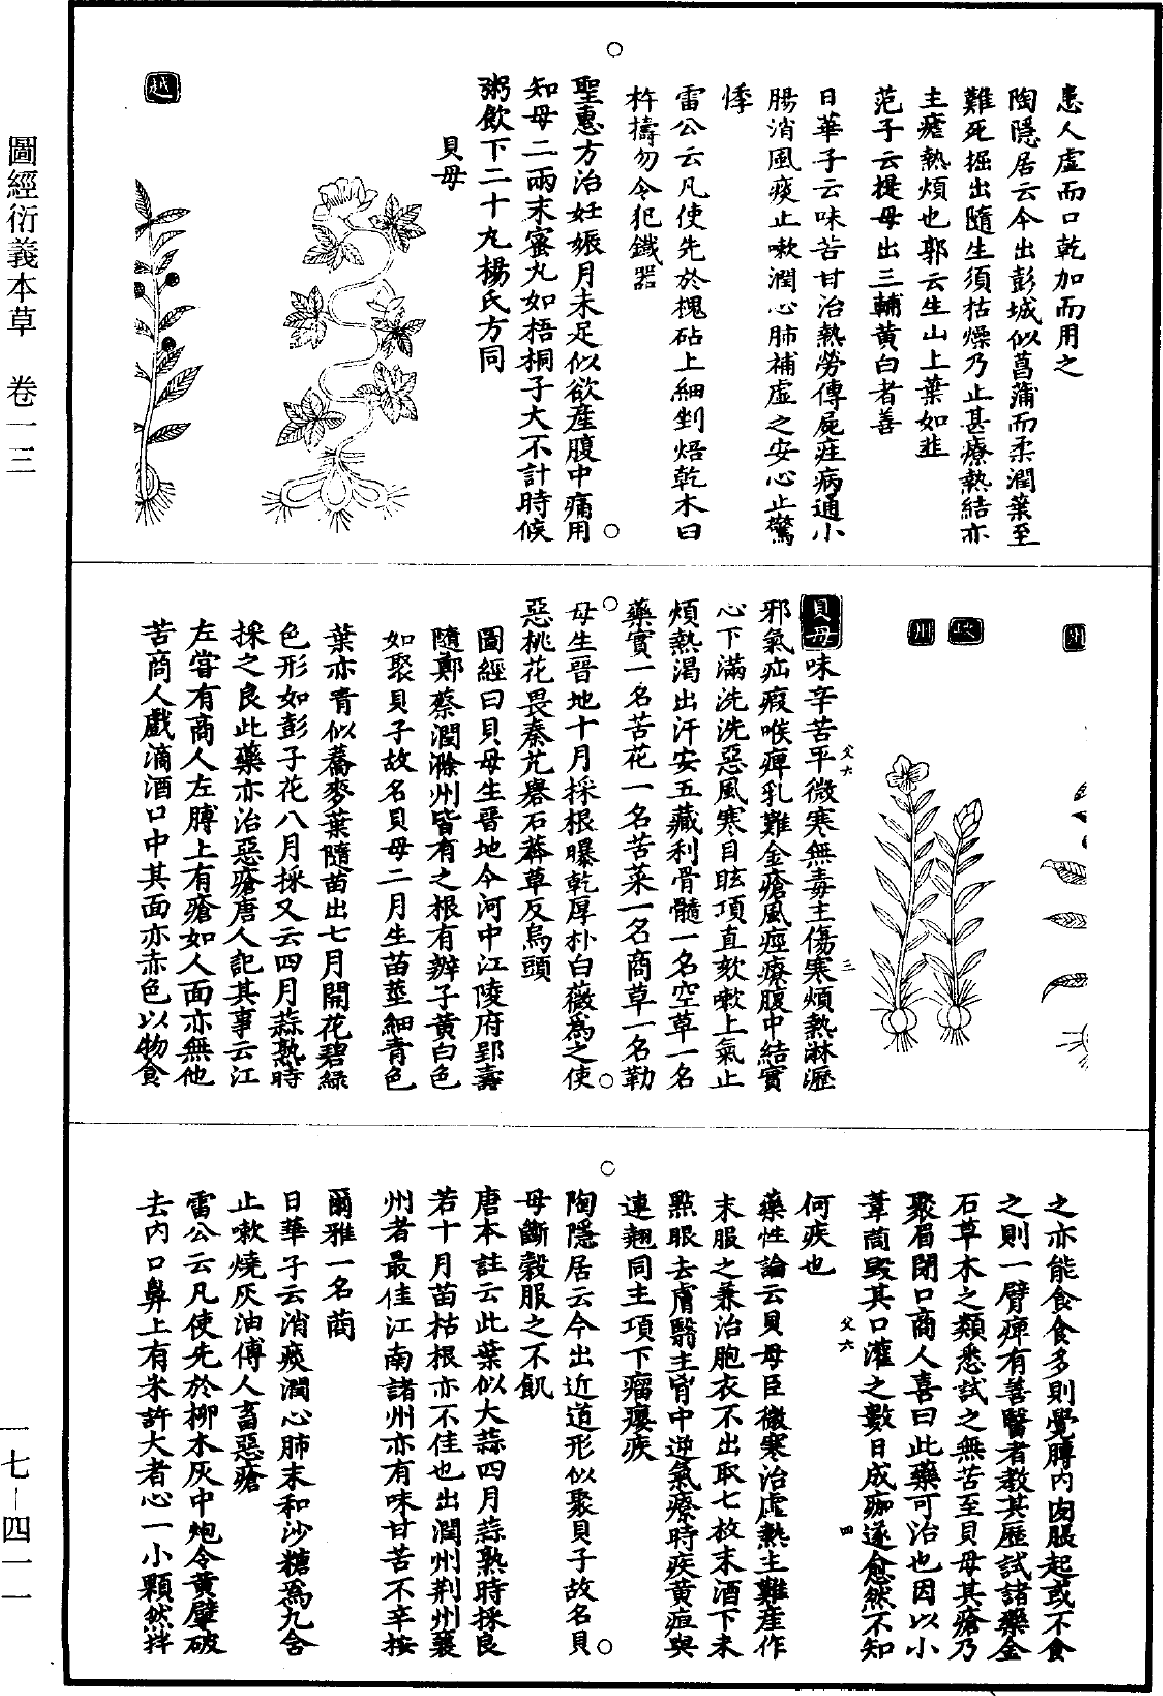 患人虛而口乾加而用之
陶隱居云今出彭城似菖蒲而柔潤葉至
難死掘出隨生須枯燥乃止甚療熱結亦
主瘧熱煩也郭云生山上葉如韭
范子云提母出三輔黃白者善
日華子云味苦甘治熱勞傳屍疰病通小
腸消風痰止嗽潤心肺補虛之安心止驚
悸
雷公云凡使先於槐砧上細剉焙乾木臼
杵擣勿令犯鐵器
聖惠方治妊娠月未足似欲產腹中痛用
知母二兩末蜜丸如梧桐子大不計時候
粥飲下二十丸楊氏方同
貝母
越
州
峽
州
貝母味辛苦平微寒無毒主傷寒煩熱淋瀝
邪氣疝瘕喉痺乳難金瘡風痙療腹中結實
心下滿洗洗惡風寒目眩項直欬嗽上氣止
煩熱渴出汗安五藏利骨髓一名空草一名
藥實一名苦花一名苦菜一名商草一名勒
母生晉地十月採根曝乾厚朴白薇為之使
惡桃花畏秦艽礜石莽草反烏頭
圖經曰貝母生晉地今河中江陵府郢壽
隨鄭蔡潤滁州皆有之根有瓣子黃白色
如聚貝子故名貝母二月生苗莖細青色
葉亦青似蕎麥葉隨苗出七月開花碧綠
色形如彭子花八月採又云四月蒜熟時
採之良此藥亦治惡瘡唐人記其事云江
左嘗有商人左膊上有瘡如人面亦無他
苦商人戲滴酒口中其面亦赤色以物食
之亦能食食多則覺膊內肉脹起或不食
之則一臂痺有善醫者教其歷試諸藥金
石草木之類悉試之無苦至貝母其瘡乃
聚眉閉口商人喜曰此藥可治也因以小
葦筒毀其口灌之數日成痂遂愈然不知
何疾也
藥性論云貝母臣微寒治虛熱主難產作
末服之兼治胞衣不出取七枚末酒下末
點眼去膚翳主胷中逆氣療時疾黃疸與
連翹同主項下瘤癭疾
陶隱居云今出近道形似聚貝子故名貝
母斷穀服之不飢
唐本註云此葉似大蒜四月蒜熟時採良
若十月苗枯根亦不佳也出潤州荆州襄
州者最佳江南諸州亦有味甘苦不辛按
爾雅一名莔
日華子云消痰潤心肺末和沙糖為丸含
止嗽燒灰油傅人畜惡瘡
雷公云凡使先於柳木灰中炮令黃擘破
去內口鼻上有米許大者心一小顆然拌
父六
三
父六
四
圖經衍義本草 卷一三
一七－四一一